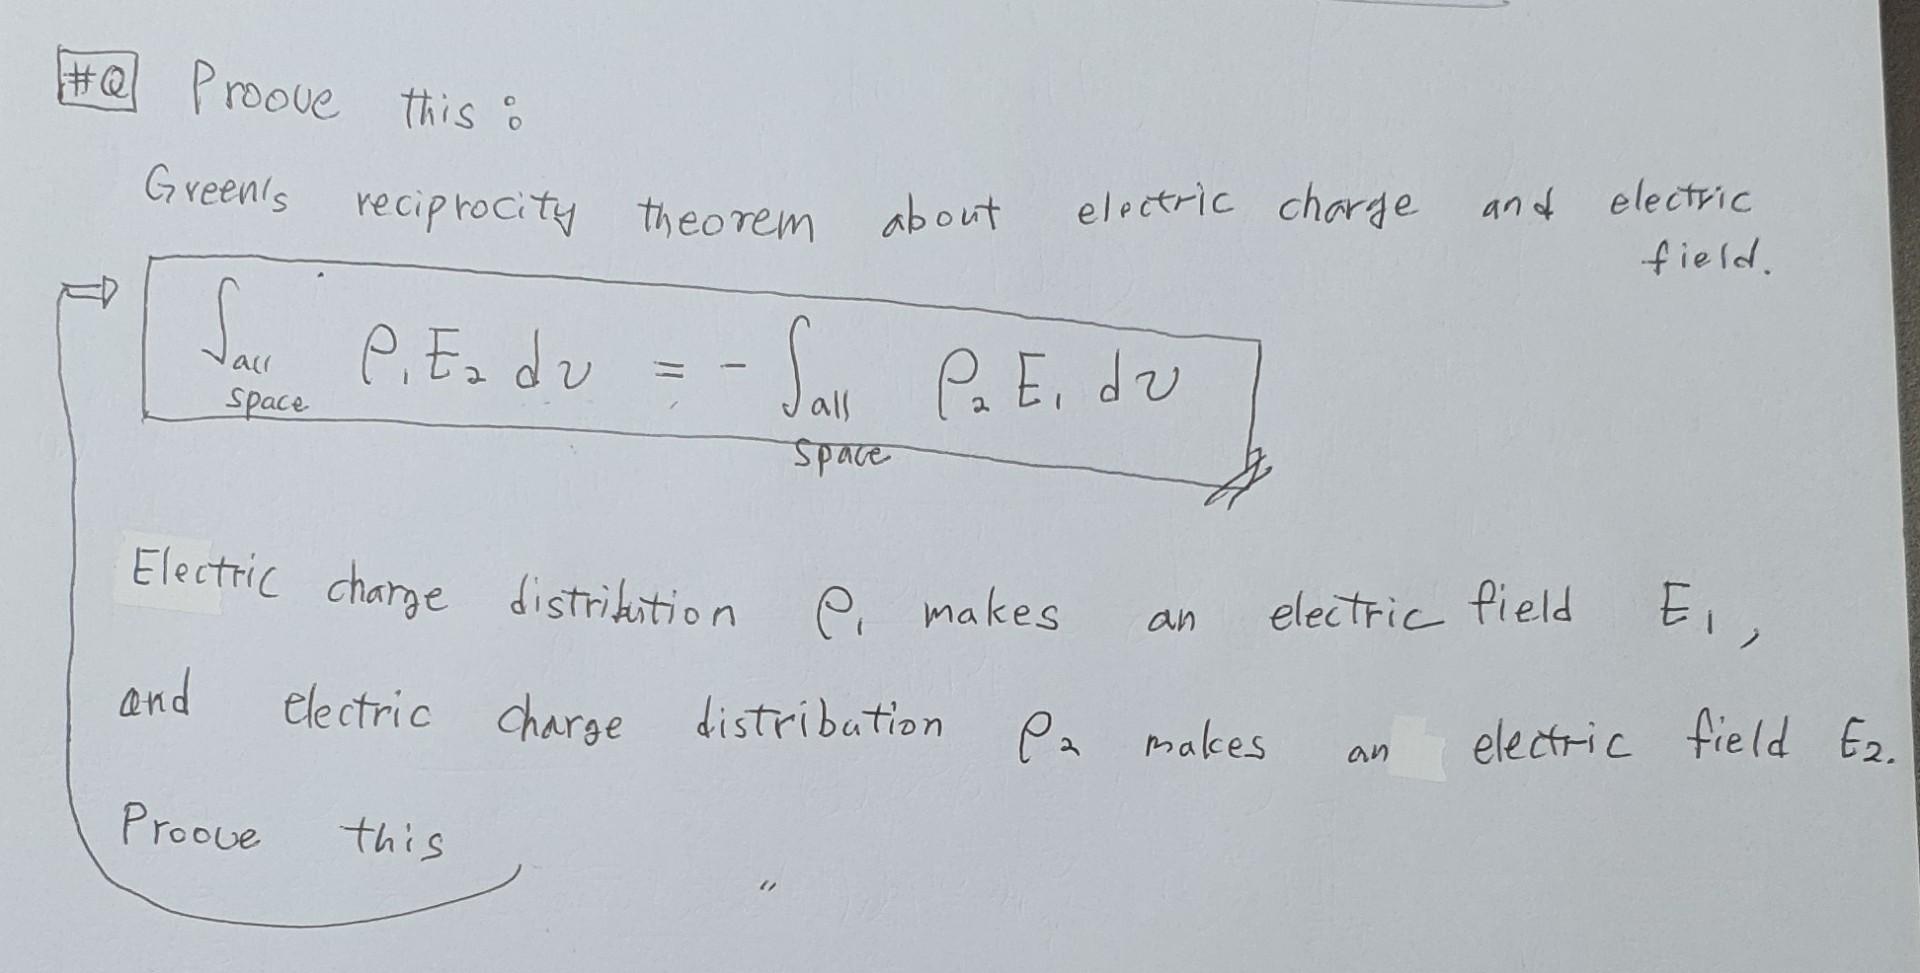 #Q Proove this:
Green's reciprocity theorem about electric charge and electric
field.
⇒ ∫all space ρ₁E₂dv = - ∫all space ρ₂E₁dv
Electric charge distribution ρ₁ makes an electric field E₁,
and electric charge distribution ρ₂ makes an electric field E₂.
Proove this
"